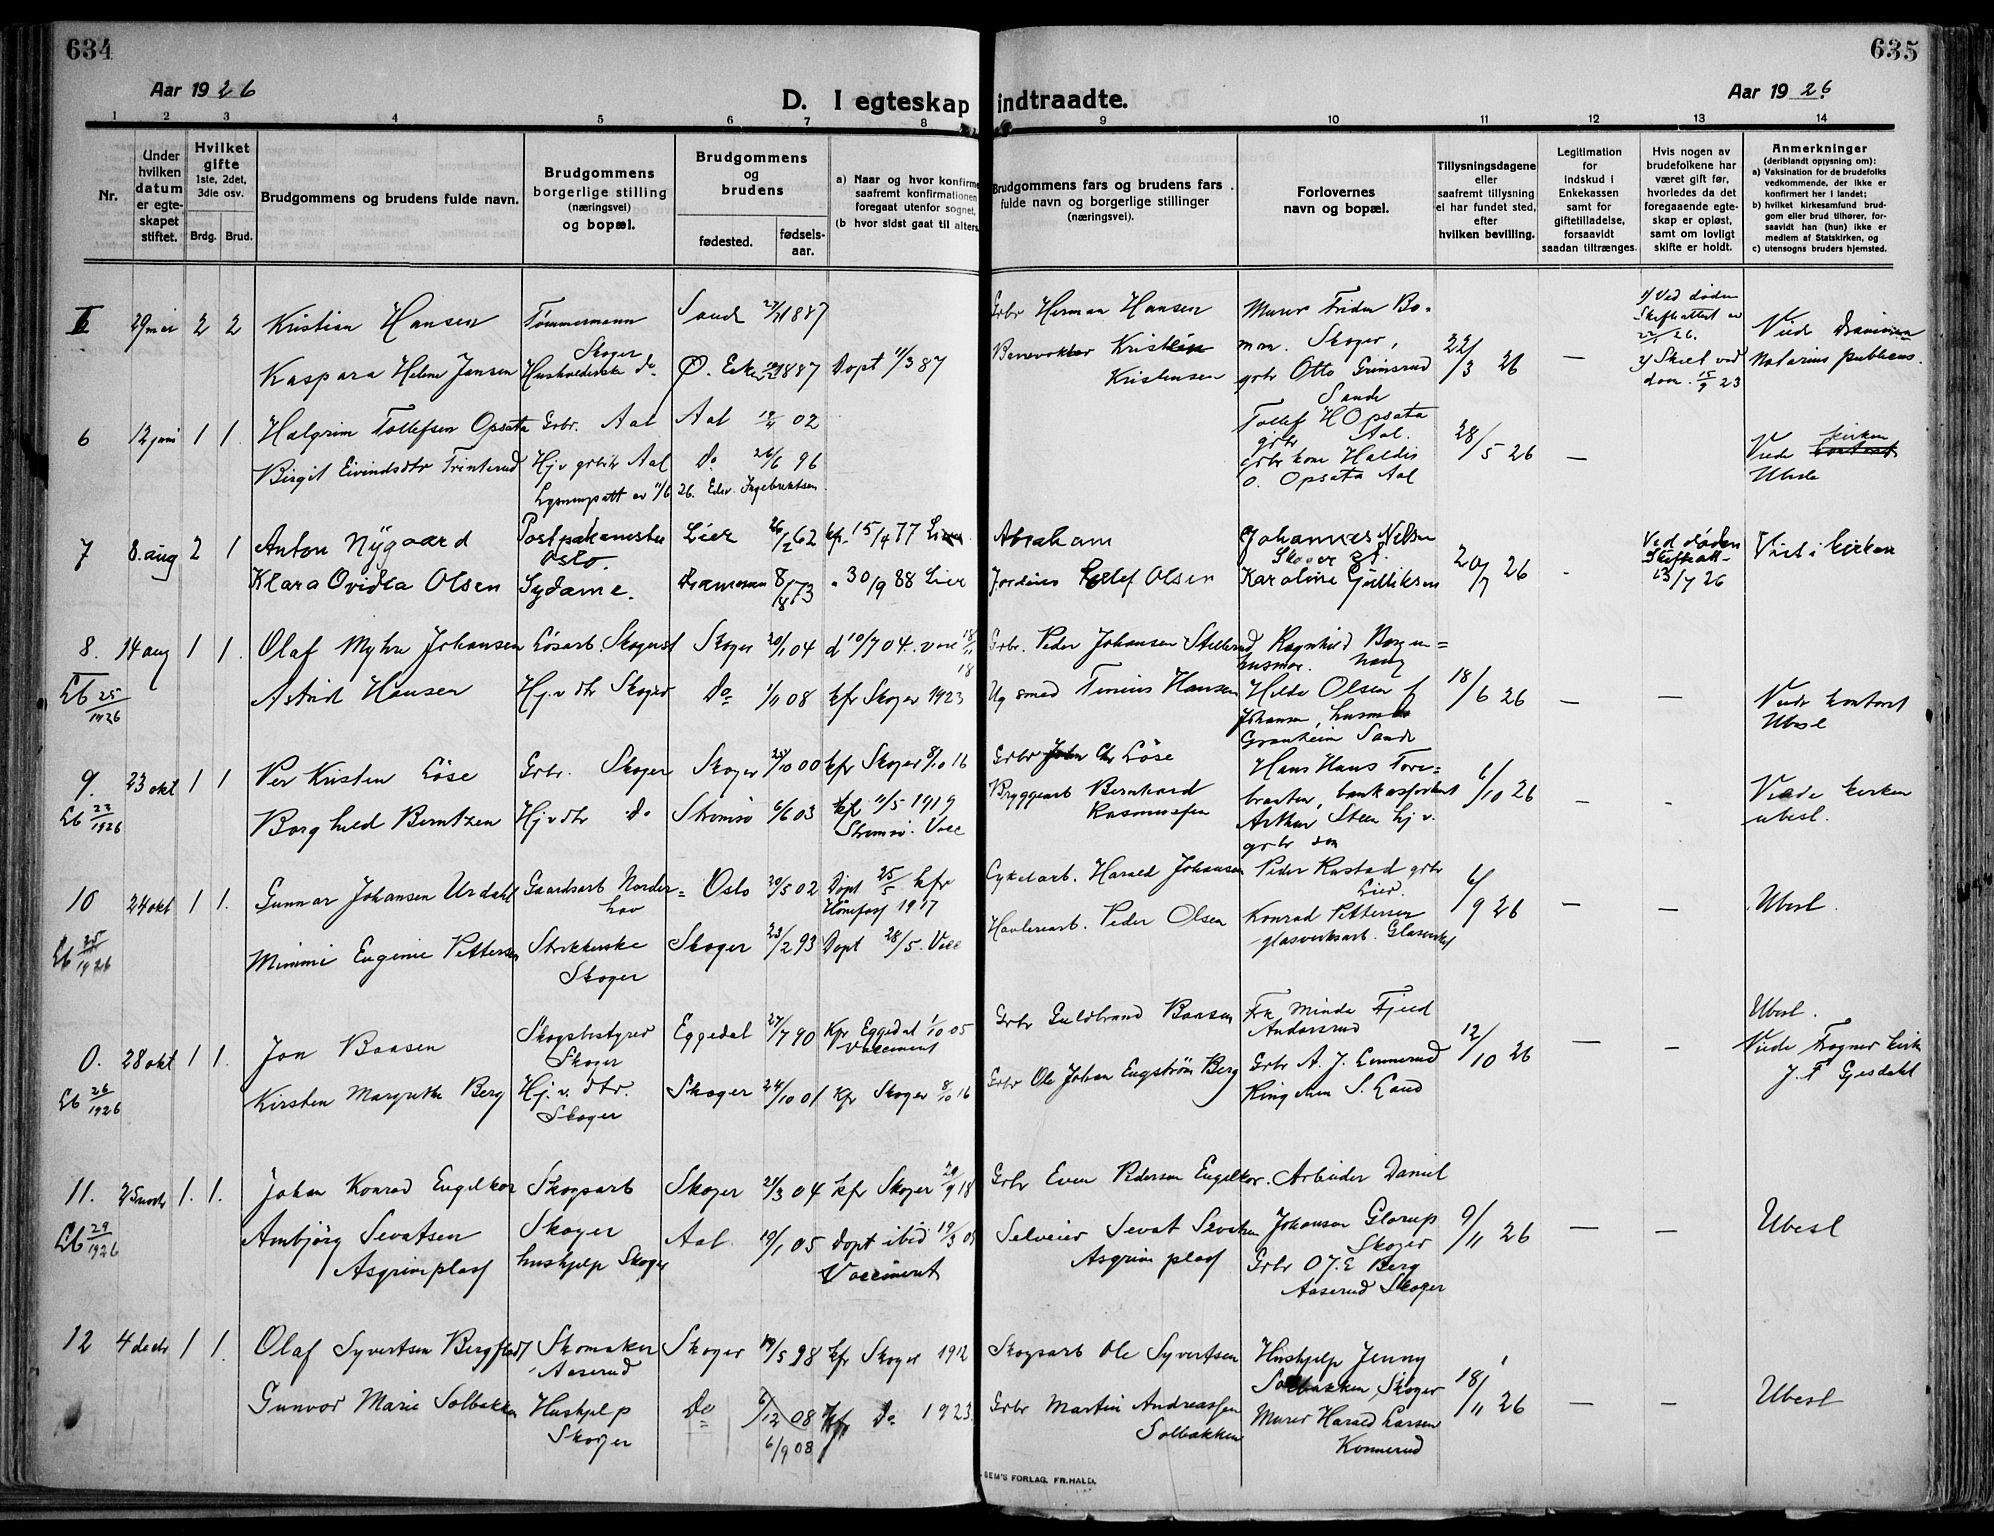 634
635
Aar 1926
D. I egteskap indtraadte.
Aar 1926
1 2 3 4 5 6 7 8 9 10 11 12 13 14
Nr.
Under hvilken datum er egteskapet stiftet.
Hvilket gifte 1ste, 2det, 3die osv.
Brdg. Brud.
Brudgommens og brudens fulde navn.
Brudgommens borgerlige stilling (næringsvei) og bopæl.
Brudgommens og brudens
fødested.
fødsels-aar.
a) Naar og hvor konfirme
saafremt konfirmationen
foregaat utenfor sognet,
(b hvor sidst gaat til alters.
Brudgommens fars og brudens fars
fulde navn og borgerlige stillinger
(næringsvei).
Forlovernes
navn og bopæl.
Tillysningsdagene
eller
saafremt tillysning
ei har fundet sted,
efter
hvilken bevilling.
Legitimation
for
indskud i
Enkekassen
samt for
giftetilladelse,
forsaavidt
saadan tiltrænges.
Hvis nogen av
brudefolkene har
været gift før,
hvorledes da det
foregaaende egte-
skap er opløst,
samt om lovligt
skifte er holdt.
Anmerkninger
(deriblandt opysning om):
a) Vaksination for de brudefolks
vedkommende, der ikke er
konfirmert her i landet;
b) hvilket kirkesamfund brud-
gom eller brud tilhører, for-
saavidt han (hun) ikke er
medlem af Statskirken, og
c) utensogns bruders hjemsted.
29 mai 2 2 Kristian Hansen Tømmermann Skoger Sande 1887 Grbr Herman Hansen
Kaspara Helene Jensen Husholderske do Ø. Eker 1887 Døpt 11/3 87 Kristensen
Murer Friden Bo-
mm. Skoger,
grbr Otto Grimsrud
Sande
22/3 26 —
1/ Ved døden
Skifteattest av
26.
2/ Skilt ved
dom. 15/9 23
Viede Drammen
Notarius publicus.
6 12 juni 1 1. Halgrim Tollefsen Opsata Grbr. Aal Aal 02
Birgit Eivindsdtr Trinterud Hj.v grbr Aal Do 26/6 96
Lysningsatt av 11/6 26. Edv. Ingebrektsen
Tollef H Opsata
grbr Aal.
grbr kone Haldis
O. Opsata Aal
28/5 26 —
Viede kirken
Ubesl
7 8. aug 2 1 Anton Nygaard Oslo. Lier 26/2 62 kfr. 15/4 77 Lier Abraham
Klara Ovidia Olsen Sydame. Drammen 8/8 73 " 30/9 88 Lier Olsen
Johannes Nilsen
Skoger gl.
Karoline Gulliksen
20/7 26
Ved døden
Skifteatt-
13/7 26
Viet i kirken
8. 14 aug 1 1. Olaf Myhre Johansen Løsarb. Skoger Skoger 20/1 04 d 10/7 04. vac 18/11 18 Grbr. Peder Johansen Stillerud
Lb 25/1926 Astrid Hansen Hj.v dtr Skoger Do 1/11 08 kfr Skoger 1923 Ug smed Tinius Hansen
Ragnhild Borgen=
husmor. haug
Hilda Olsen f
Johansen, husmor
Granheim Sande
18/6 26 — —
Viede kontoret
Ubesl
9. 23 okt 1 1 Per Kristen Løse Grbr. Skoger Skoger 00 kfr Skoger 8/10 16 Grbr Chr Løse
Lb 23/1926 Borghild Berntzen Hj.v dtr do Strømsø 6/6 03 kfr 11/5 1919 Strømsø. Vacc Bryggearb Bernhard Rasmussen
Hans Hans Tore=
braaten,
Arthur Steen hj v.
grbr søn
6/10 26 — -
Viede kirken
ubesl.
10 24 okt 1 1. Gunnar Johansen Urdahl Gaardsarb Norder= hov Oslo 20/5 02 Døpt 25/5 kfr Hønefoss 1917 Cykelarb. Harald Johansen
Lb 25/1926 Mimmi Eugenie Pettersen Strikkerske Skoger Skoger 23/2 93 Døpt 28/5. Vacc Høvleriarb. Peder Olsen
Peder Rustad grbr
Lier.
Konrad Pettersen
glasverksarb. Glasverket
6/9 26 — —
Ubesl.
0. 28 okt 1 1. Jon Baasen Skogbestyrer Skoger Eggedal 27/7 90 Kfr Eggedal 1/10 05 Vaccinert Grbr Guldbrand Baasen
Lb 26/1926 Kirsten Margrethe Berg Hj. v. dtr. Skoger Skoger 24/10 01 kfr Skoger 8/10 16 Grbr Ole Johan Engstrøm Berg
Frk Minda Fjeld
Andersrud
Grbr A. J. Linnerud
Ringerem S. Land
12/10 26 — —
Ubesl.
Viede Frogner kirke
J. F Gjesdahl
11. 25 novbr 1. 1. Johan Konrad Engelkor Skogsarb Skoger Skoger 21/3 04 kfr Skoger 29/9 18 Grbr Even Pedersen Engelkor.
Lb 29/1926 Ambjørg Sevatsen Asgrimplass hushjelp Skoger Aal 19/1 05 Døpt ibid 19/3 05 Vaccinert Selveier Sevat Asgrim plass
Arbeider Daniel
Johansen Glorup
Skoger
Grbr O J. E Berg
Aaserud Skoger
9/11 26 — —
Ubesl
12 4 decbr 1 1. Olaf Syvertsen Bergflødt Skomaker Aaserud Skoger 19/5 98 kfr Skoger 1912 Skogsarb Ole Syvertsen
Gunvor Marie Solbakken Hushjelp Skoger Do 6/12 08 kfr Do 1923. Grbr Martin Andreassen
6/9 08 Solbakken
Hushjelp Jenny
Solbakken, Skoger
Murer Harald Larsen
Konnerud
18/11 26 — —
Ubesl
SEM'S FORLAG. FR.HALD.